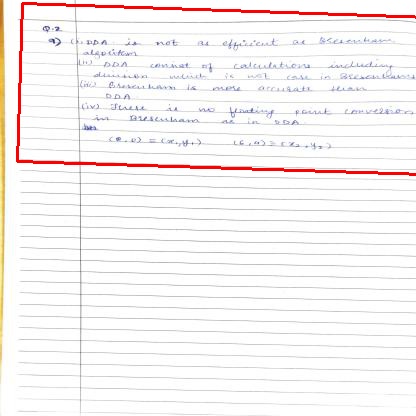 Q.2
a) (i) DDA is not as efficient as Bresenham
algorithm
(ii) DDA consist of calculations including
division which is not case in Bresenhams
(iii) Bresenham is more accurate than
DDA
(iv) There is no floating point conversion
in Bresenham as in DDA.
(0, 0) = (x1, y1) (6, 0) = (x2, y2)